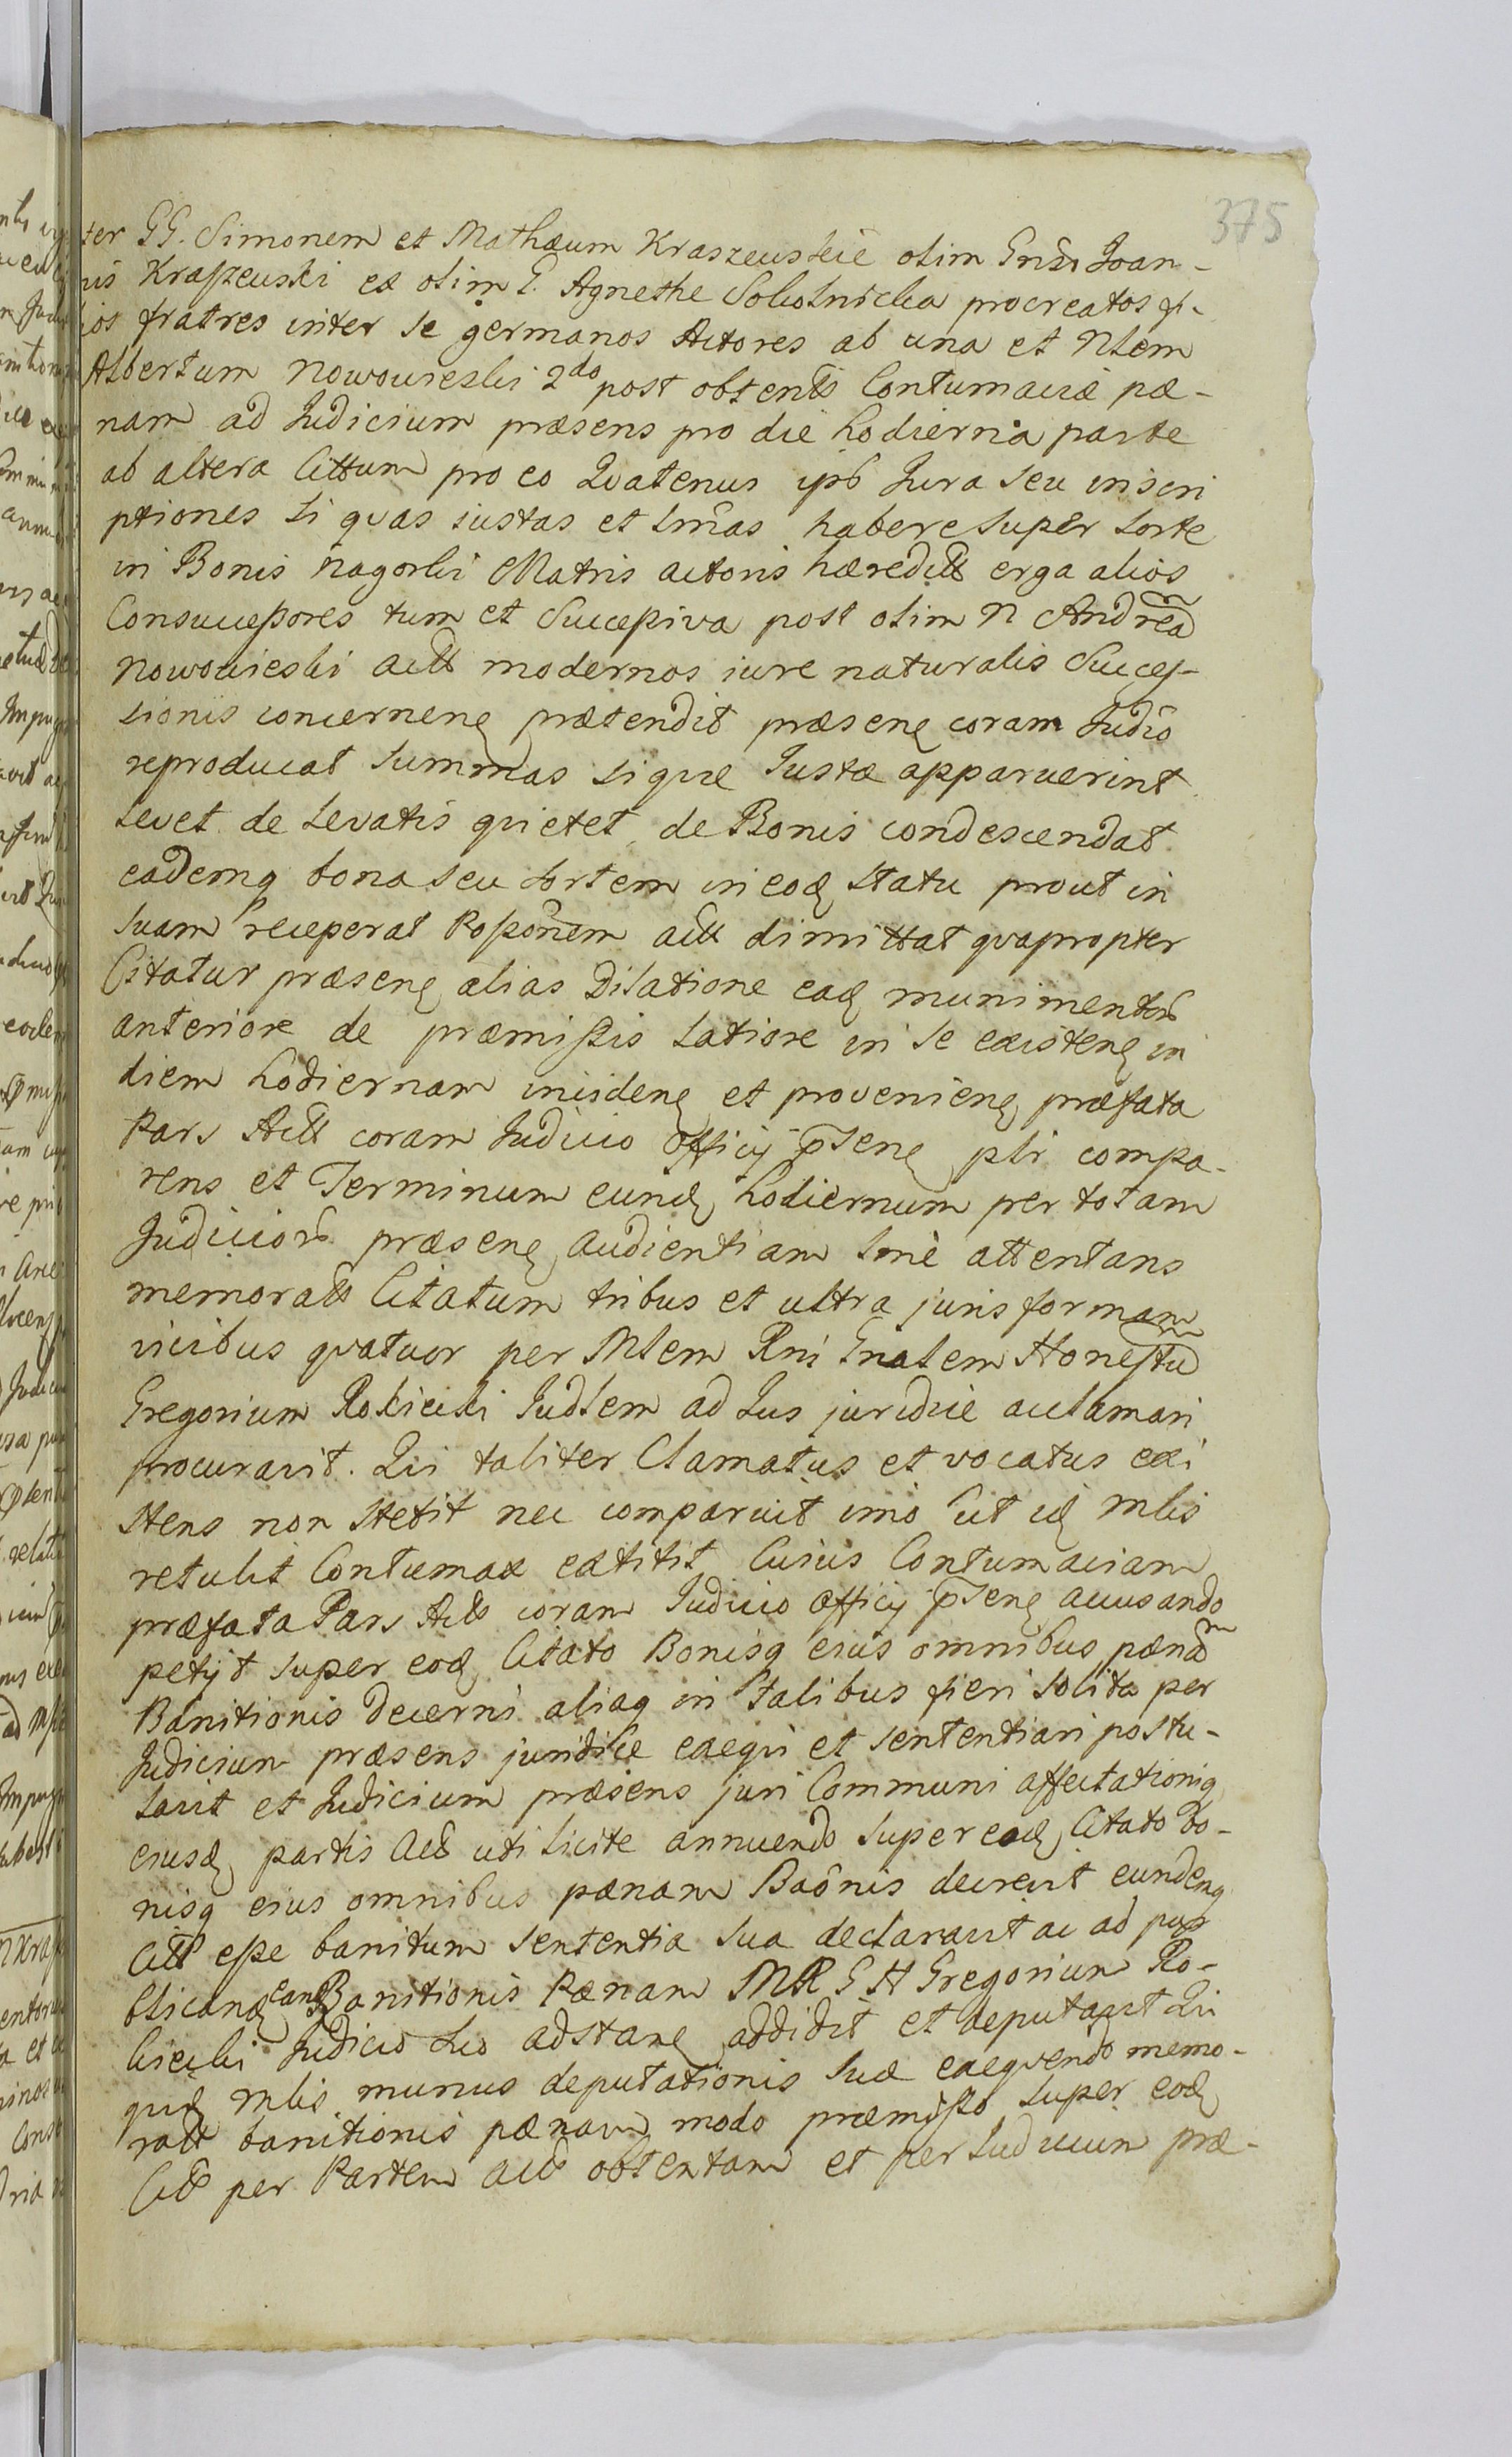 375
ter GG. Simonem et Mathæum Kraszewskie olim Gnsi Joan-
nis Kraszewski ex olim G. Agnethe Sokolnicka procreatos fi-
lios fratres inter se germanos Actores ab una et Nlem
Albertum Nowowieski 2do post obtents Contumaciæ pæ-
nam ad Judicium præsens pro die hodierna parte
ab altera Cittum pro eo Qvatenus ips Jura seu inscri
ptiones si qvas iustas et lmas habere super sorte
in Bonis Nagorki Matris actoris hæredits erga alios
Consuccessores tum et Successiva post olim N Andream
Nowowieski actt modernos iure naturalis Succes-
sionis concernen prætendit præsen coram Judio
reproducat summas si qvæ Justæ apparuerint
levet de levatis qvietet de Bonis condescendat
eademq bona seu sortem in eod statu prout in
suam receperat Possonem actt dimittat qvapropter
Citatur præsen alias Dilatione ead munimentor
anteriore de præmissis latiore in se existen in
diem hodiernam inciden et provenien præfata
Pars Actt coram Judicio Officij psen plr compa-
rens et Terminum eund hodiernum per totam
Judicior præsen audientiam lme attentans
memoratt Citatum tribus et ultra juris formam
vicibus qvatuor per Mlem Rni Gnalem Honestum
Gregorium Rokicki Judlem ad Jus juridice acclamari
procuravit. Qvi taliter Clamatus et vocatus exi
stens non stetit nec comparuit imo ut id Mlis
retulit Contumax extitit Cuius Contumaciam
præfata Pars Actt coram Judicio Officij psen accusando
petijt super eod Citato Bonisq eius omnibus pænam
Banitionis decerni aliaq in talibus fieri solita per
Judicium præsens juridice exeqvi et sententiari postu-
lavit et Judicium præsens juri Communi affectationiq
eiusd partis Actt uti licite annuendo super eod Citato bo-
nisq eius omnibus pænam Baonis decrevit eundemq
Citt esse banitum sententia sua declaravit ac ad pub
blicand eand Banitionis Pænam MRGH Gregorium Ro-
kicki Judicio suo adstan addidit et deputavit Qvi
qvid Mlis munus deputationis suæ exeqvendo memo-
ratt banitionis pænam modo præmisso super eod
Citt per Partem actt obtentam et per Judicium præ-